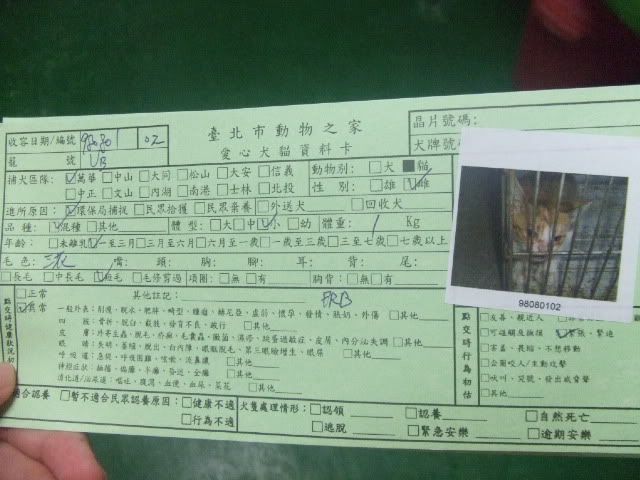 臺北市動物之家
愛心犬貓資料卡
晶片號碼:
犬牌號
收容日期/編號 980801 02
籠 號 VB
補犬區隊: 萬華 中山 大同 松山 大安 信義
中正 文山 內湖 南港 士林 北投
動物別: 犬 貓
性 別: 雄 雌
進所原因: 環保局捕捉 民眾拾獲 民眾棄養 外送犬 回收犬
品 種: 混種 其他 體 型: 大 中 小 幼 體重: 1 Kg
年齡: 未離乳 一至三月 三月至六月 六月至一歲 一歲至三歲 三至七歲 七歲以上
毛色: 三花 嘴: 頭: 胸: 腳: 耳: 背: 尾:
長毛 中長毛 短毛 毛修剪過 項圈: 無 有 胸背: 無 有
98080102
點交時健康狀況初
正常 其他註記: FRB
異常
一般外表: 削瘦、脫水、肥胖、畸型、腫瘤、赫尼亞、虛弱、懷孕、發情、脹奶、外傷 其他
四 肢: 骨折、脫臼、截肢、發育不良、跛行 其他
皮 膚: 外寄生蟲、脫毛、疥癬、毛囊蟲、黴菌、濕疹、跳蚤過敏症、皮屑、內分泌失調 其他
眼 睛: 失明、萎縮、脫出、白內障、眼瞼脫毛、第三眼瞼增生、眼屎 其他
呼 吸 道: 急促、呼吸困難、咳嗽、流鼻膿 其他
神經症狀: 抽搐、癲癇、不癱、昏迷、全癱 其他
消化道/泌尿道: 嘔吐、腹瀉、血便、血尿、菜花 其他
點交時行為初估
友善、親近人 其他
緊張、緊迫
害羞、畏縮、不想移動
公開咬人/主動攻擊
吠叫、哭號、發出威脅聲
其他
適合認養 暫不適合民眾認養原因: 健康不適
行為不適
犬隻處理情形: 認領 認養 自然死亡
逃脫 緊急安樂 逾期安樂